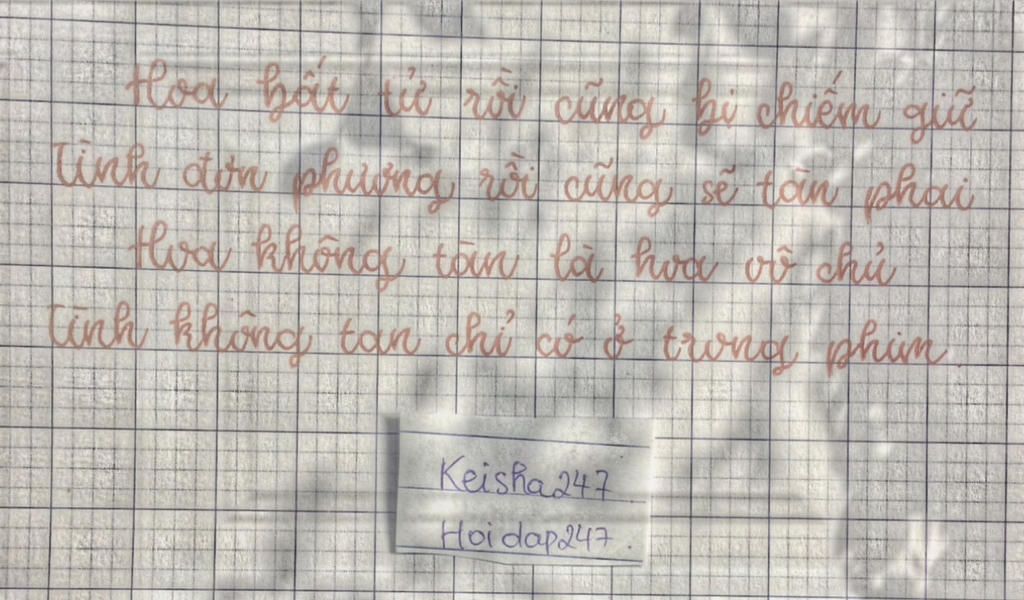 Hoa bất tử rồi cũng bị chiếm giữ
Tình đơn phương rồi cũng sẽ tàn phai
Hoa không tàn là hoa vô chủ
Tình không tan chỉ có ở trong phim.
Keisha247
Hoidap247.